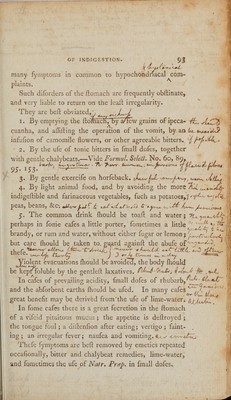 OF INDIGESTION. 93
many symptoms in common to hypochondriacal com-
plaints.
Such disorders of the stomach are frequently obstinate,
and very liable to return on the least irregularity.
They are best obviated,
1. By emptying the stomach, by a few grains of ipeca-
cuanha, and assisting the operation of the vomit, by an
infusion of camomile flowers, or other agreeable bitters.
2. By the use of tonic bitters in small doses, together
with gentle chalybeats.—Vide Formul. Select. No. 60, 89,
95. 153.
3. By gentle exercise on horseback.
4. By light animal food, and by avoiding the more
indigestible and farinaceous vegetables, such as potatoes,
peas, beans, &c.
5. The common drink should be toast and water;
perhaps in some cases a little porter, sometimes a little
brandy, or rum and water, without either sugar or lemon;
but care should be taken to guard against the abuse of
these.
Violent evacuations should be avoided, the body should
be kept soluble by the gentlest laxatives.
In cases of prevailing acidity, small doses of rhubarb,
and the absorbent earths should be used. In many cases
great benefit may be derived from the use of lime-water.
In some cases there is a great secretion in the stomach
of a viscid pituitous mucus; the appetite is destroyed;
the tongue foul; a distension after eating; vertigo; faint-
ing; an irregular fever; nausea and vomiting.
These symptoms are best removed by emetics repeated
occasionally, bitter and chalybeat remedies, lime-water,
and sometimes the use of Natr. Prep. in small doses.